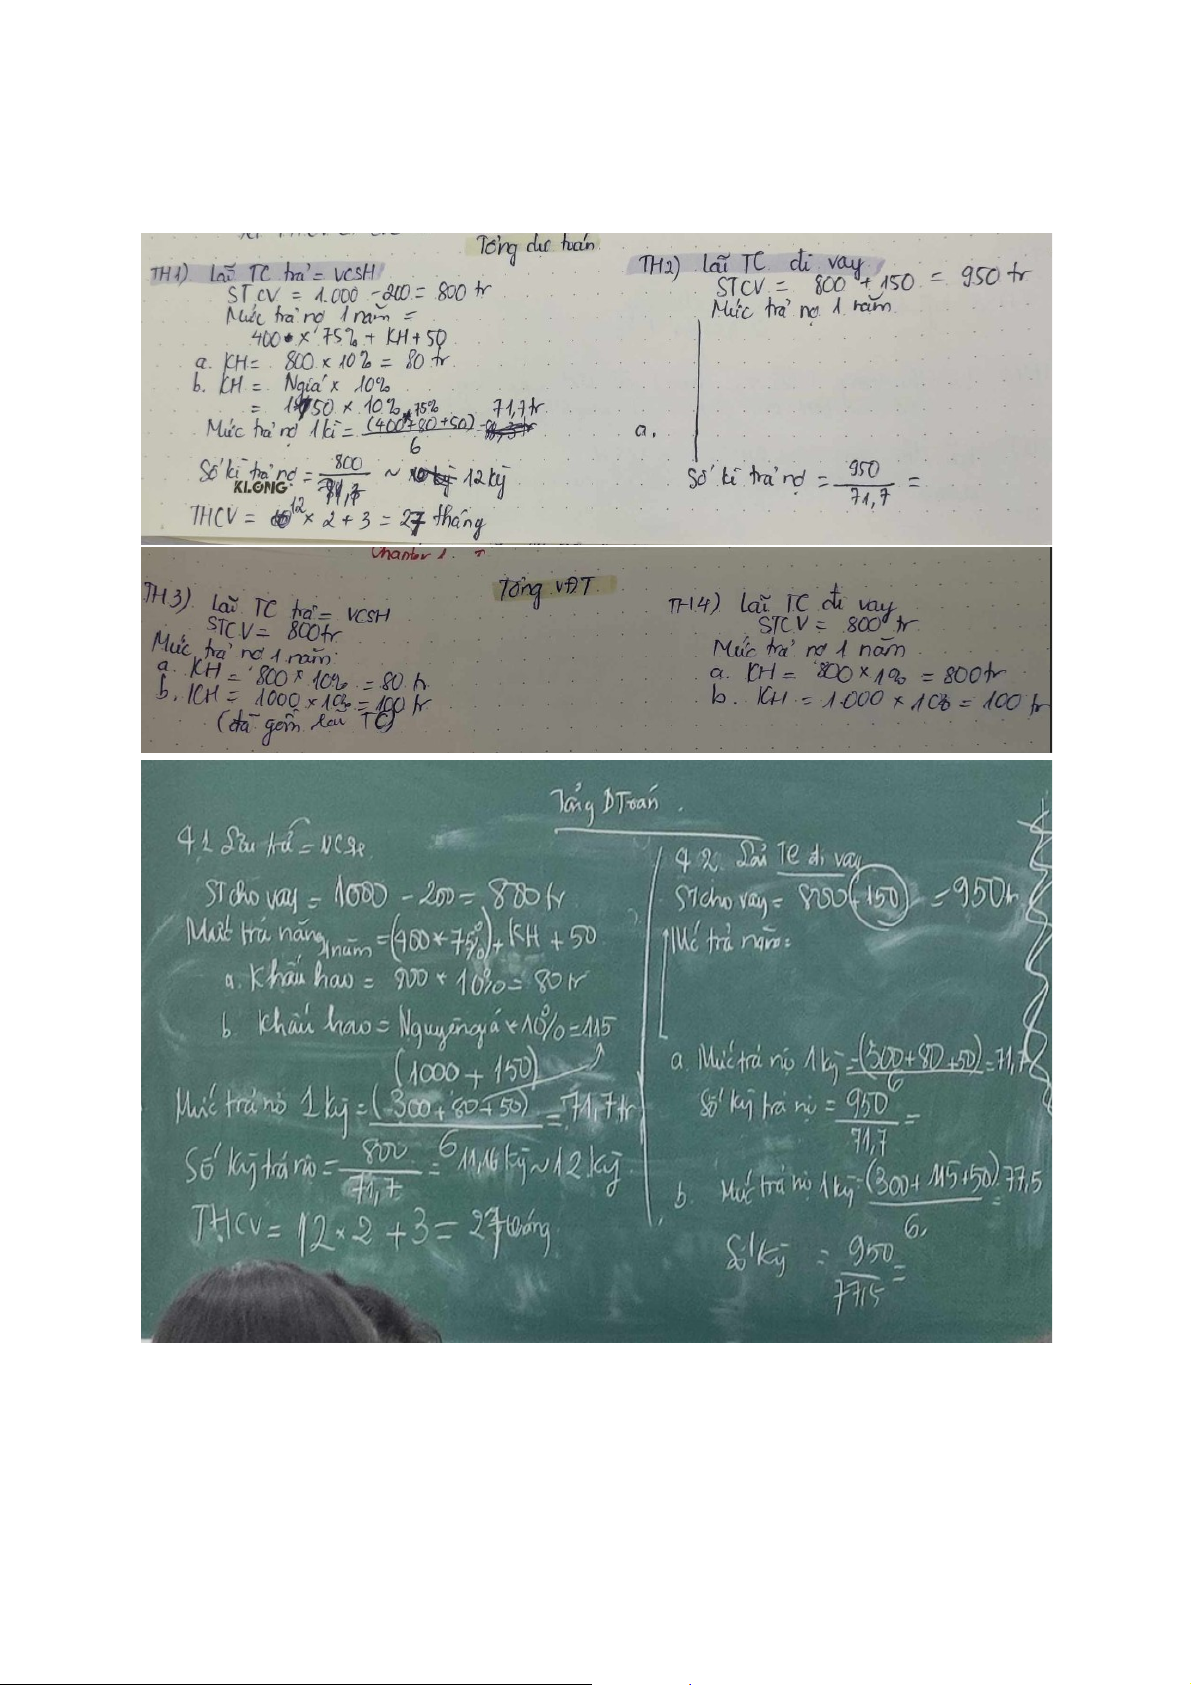 Tổng dự toán
TH1) Lãi TC trả = VCSH
STCV = 1.000 - 200 = 800 tr
Mức trả nợ 1 năm =
400 × 75% + KH + 50
a. KH = 800 × 10% = 80 tr
b. KH = Ngiá × 10%
= 1150 × 10%
Mức trả nợ 1 kì = (400 × 75% + 80 + 50) / 6 = 71,7 tr
Số kì trả nợ = 800 / 71,7 ~ 12 kỳ
KLONG
THCV = 12 × 2 + 3 = 27 tháng
TH2) Lãi TC đi vay
STCV = 800 + 150 = 950 tr
Mức trả nợ 1 năm
a.
Số kì trả nợ = 950 / 71,7 =
Chapter 1.
Tổng VĐT
TH3) Lãi TC trả = VCSH
STCV = 800 tr
Mức trả nợ 1 năm:
a. KH = 800 × 10% = 80 tr
b. KH = 1000 × 10% = 100 tr
(đã gồm lãi TC)
TH4) Lãi TC đi vay
STCV = 800 tr
Mức trả nợ 1 năm
a. KH = 800 × 1% = 800 tr
b. KH = 1.000 × 10% = 100 tr
Tổng DToán
4.1 Lãi trả = VCSH
ST cho vay = 1000 - 200 = 800 tr
Mức trả năng 1 năm = (400 × 75%) + KH + 50
a. Khấu hao = 800 × 10% = 80 tr
b. Khấu hao = Nguyên giá × 10% = 115
(1000 + 150)
Mức trả nợ 1 kỳ = (300 + 80 + 50) / 6 = 71,7 tr
Số kỳ trả nợ = 800 / 71,7 = 11,16 kỳ ~ 12 kỳ
THCV = 12 × 2 + 3 = 27 tháng
4.2. Lãi TC đi vay
ST cho vay = 800 + 150 = 950 tr
Mức trả năm =
a. Mức trả nợ 1 kỳ = (300 + 80 + 50) / 6 = 71,7
Số kỳ trả nợ = 950 / 71,7 =
b. Mức trả nợ 1 kỳ = (300 + 115 + 50) / 6 = 77,5
Số kỳ = 950 / 77,5 =